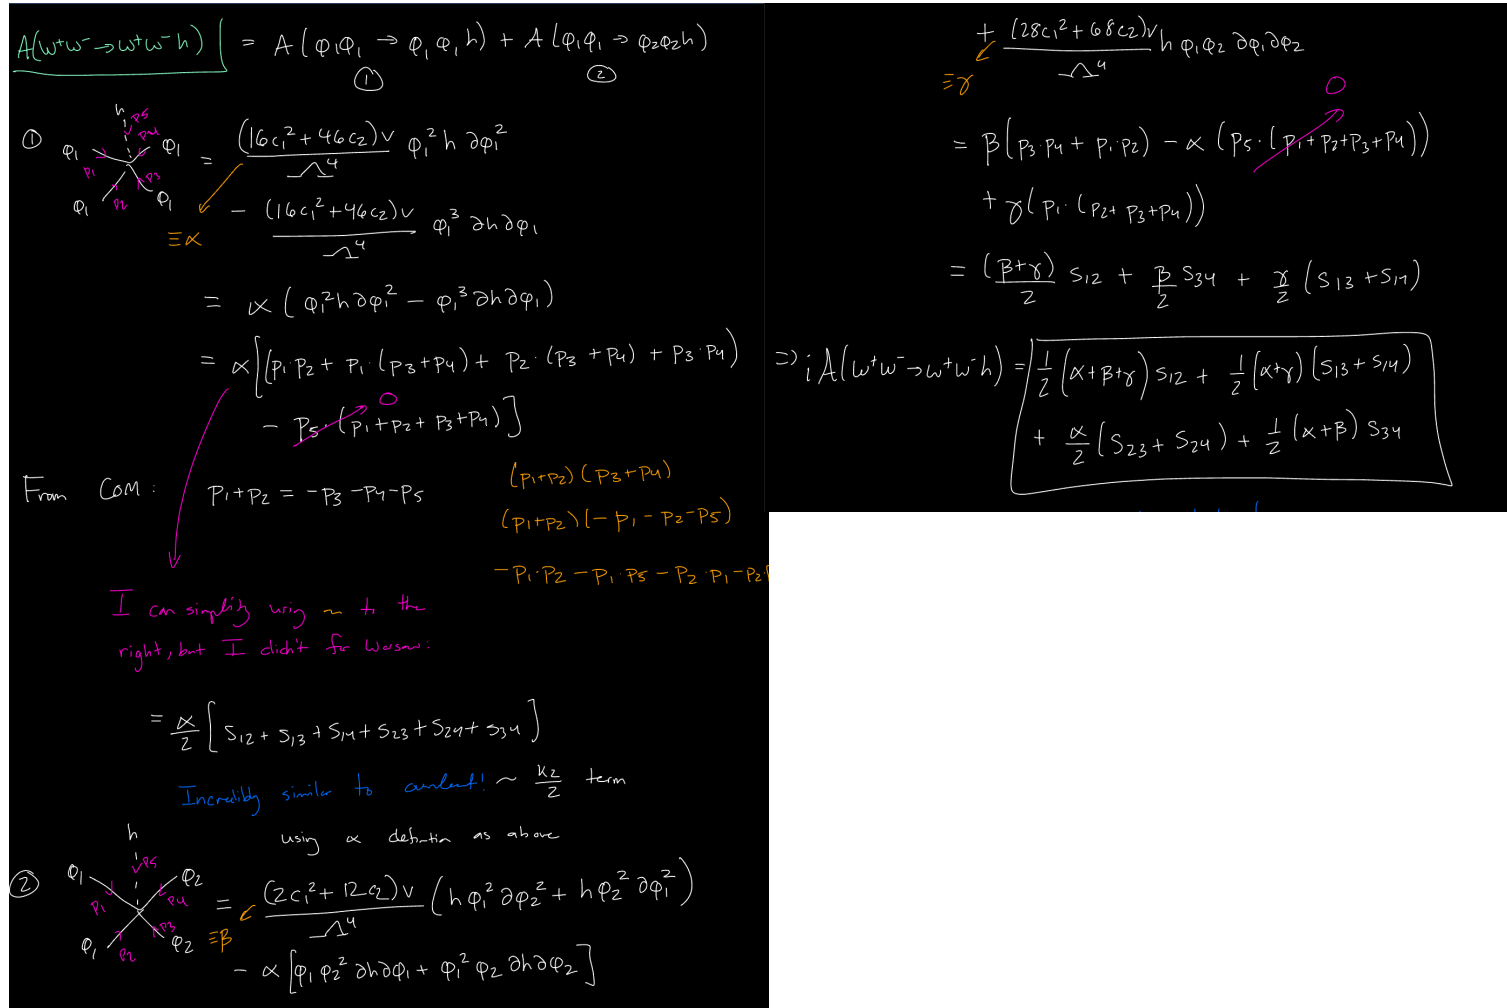 A(W⁺W⁻ → W⁺W⁻h) = A(φ₁φ₁ → φ₁φ₁h) + A(φ₁φ₁ → φ₂φ₂h)
① ②
①
h
p₅
p₄
φ₁ φ₁
p₁ p₃
φ₁ p₂ φ₁
= (16c₁² + 46c₂)v / Λ⁴ φ₁² h ∂φ₁²
− (16c₁² + 46c₂)v / Λ⁴ φ₁³ ∂h∂φ₁
≡α
= α (φ₁²h∂φ₁² − φ₁³∂h∂φ₁)
= α[(p₁·p₂ + p₁·(p₃+p₄) + p₂·(p₃+p₄) + p₃·p₄)
0
− p₅·(p₁+p₂+p₃+p₄)]
From COM: p₁+p₂ = −p₃−p₄−p₅
(p₁+p₂)(p₃+p₄)
(p₁+p₂)(−p₁−p₂−p₅)
−p₁·p₂ −p₁·p₅ −p₂·p₁ −p₂·
I can simplify using ~ to the
right, but I didn't for Warsaw:
= α/2 [S₁₂ + S₁₃ + S₁₄ + S₂₃ + S₂₄ + S₃₄]
Incredibly similar to ! ~ k₂/2 term
using α definition as above
②
h
p₅
φ₁ φ₂
p₁ p₄
p₃
φ₁ p₂ φ₂
= (2c₁² + 12c₂)v / Λ⁴ (hφ₁²∂φ₂² + hφ₂²∂φ₁²)
≡β
− α[φ₁φ₂²∂h∂φ₁ + φ₁²φ₂∂h∂φ₂]
+ (28c₁² + 68c₂)v / Λ⁴ h φ₁φ₂ ∂φ₁∂φ₂
≡γ
0
= β(p₃·p₄ + p₁·p₂) − α(p₅·(p₁+p₂+p₃+p₄))
+ γ(p₁·(p₂+p₃+p₄))
= (β+γ)/2 S₁₂ + β/2 S₃₄ + γ/2 (S₁₃+S₁₄)
⇒ iA(W⁺W⁻→W⁺W⁻h) = 1/2 (α+β+γ)S₁₂ + 1/2 (α+γ)(S₁₃+S₁₄)
+ α/2 (S₂₃+S₂₄) + 1/2 (α+β) S₃₄